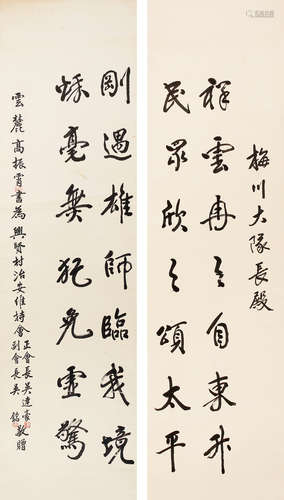 梅川大隊長殿
祥雲冉々自東升
民眾欣々頌太平
剛遇雄師臨我境
秋毫無犯免虛驚
雲麓高振霄書為興賢村治安維持會
正會長吳達豪
副會長吳銘
敬贈